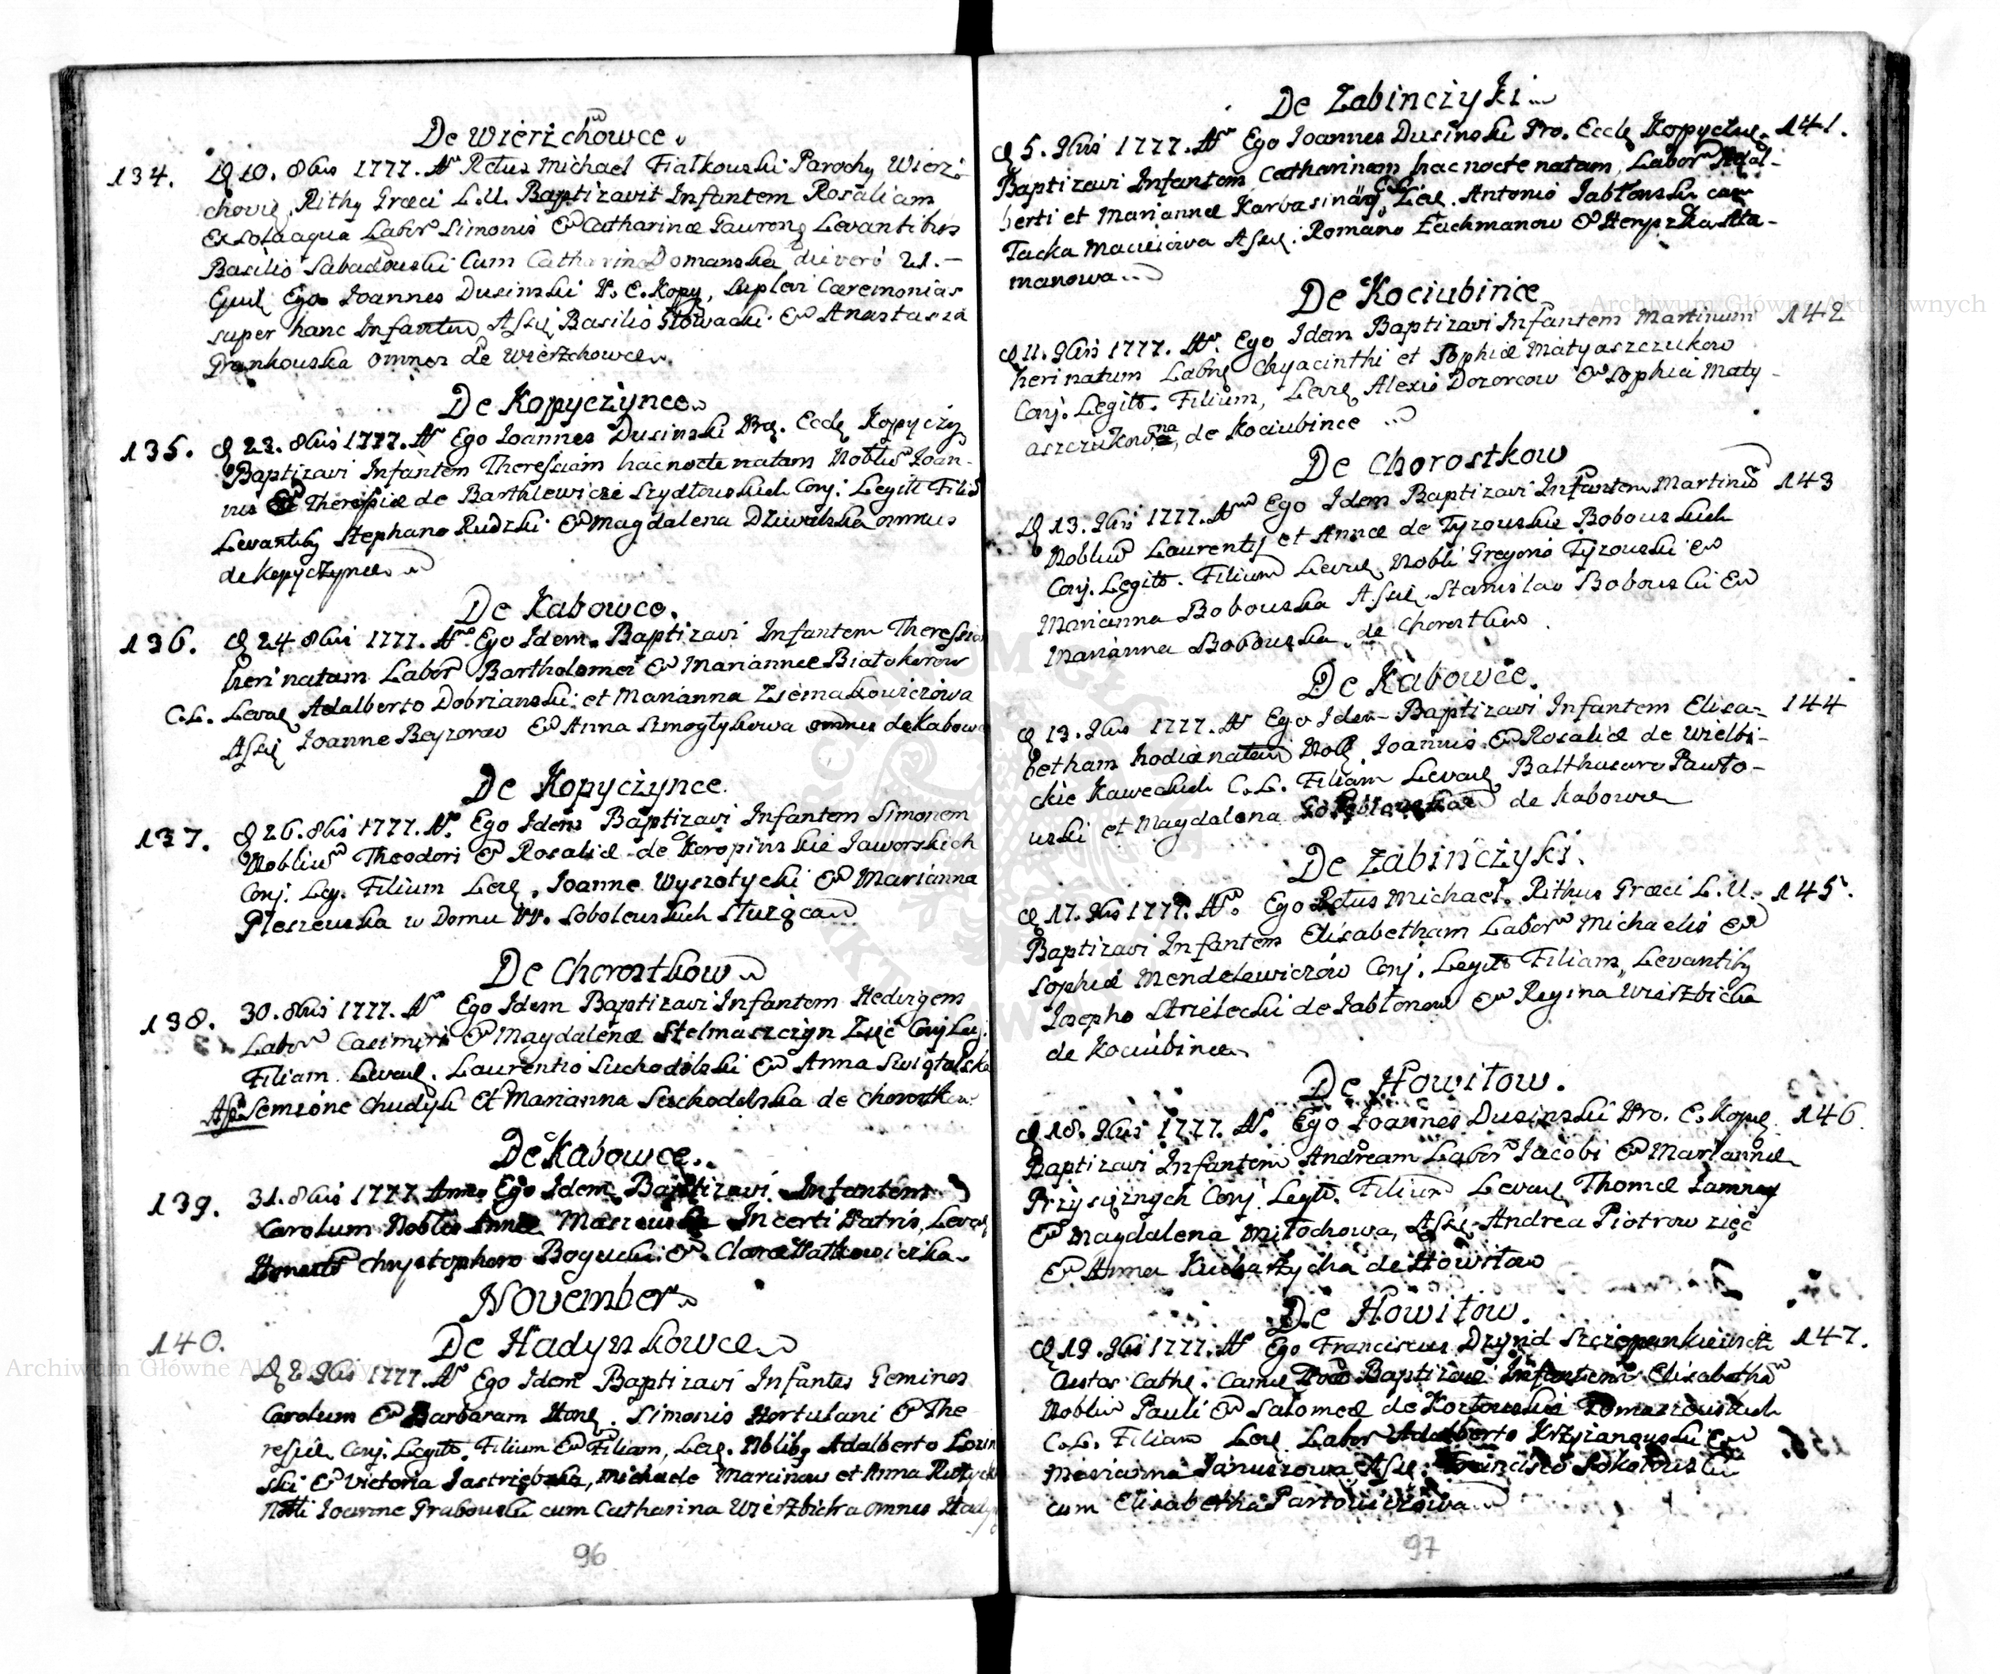 De Wierzchowce
134. D 10. 8bris 1777. Ao Rdus Michael Fiałkouski Parochy Wierz-
chovie, Rithy Græci L.U. Baptizavit Infantem Rosaliam
Ex Sola aqua Labor Simonis & Catharinæ Levantibus
Basilio Sabadouski Cum Catharina Domanska, die verò 21.
Ejusd Ego Joannes Dusinski P. E. Kopy, Suplevi Cæremonias
super hanc Infantem Assis Basilio Głowacki & Anastasia
Grankouska omnes de Wierzchowce
De Kopyczynce
135. D 23. 8bris 1777. Ao Ego Joannes Dusinski Præ. Eccle Kopyczy
Baptizavi Infantem Theressiam hac nocte natam Nobliu Joan-
nis & Theressiæ de Barthlewicze Szydłouskich Conj. Legitt Filia
Levantiby Stephano Rudzki & Magdalena omnes
de Kopyczynce
De Kabowce.
136. D 24 8bris 1777. Ao. Ego Idem. Baptizavi Infantem Theressia
heri natam Labor Bartholomei & Mariannæ Białokorow
C.L. Levae Adalberto Dobrianski et Marianna Ziemakowiczowa
Assis Joanne Reyzorow & Anna omnes de Kabow
De Kopyczynce.
137. D 26. 8bris 1777. Ao. Ego Idem Baptizavi Infantem Simonem
Nobliu Theodori & Rosaliæ de Koropinskie Jaworskich
Conj. Leg. Filium Leve. Joanne Wyszotycki & Marianna
Pleszeuska w Domu W. Soboleuskich Służącą
De Chorostkow
138. 30. 8bris 1777. Ao Ego Idem Baptizavi Infantem Hedvigem
Labor Casimiri & Magdalenæ Stelmaszczyn Zięć Conj Leg.
Filiam. Levae. Laurentio Suchodolski & Anna
Assis Semione Chudyk Et Marianna Suchodolska de Chorostk
De Kabowce.
139. 31. 8bris 1777. Anno Ego Idem Baptizavi Infantem
Carolum Noblis Annæ Incerti Patris, Levae
Chrystophoro Bogucki &
November
De Hadynkowce
140. D 2. 9bris 1777. Ao Ego Idem Baptizavi Infantes Geminos
Carolum & Barbaram Hone. Simonis Hortulani & The
ressiæ Conj. Legitt. Filium & Filiam, Leve. Nbliby Adalberto
ski & Victoria Jastriębska, Michaele Marcinow et Anna
Nobli Joanne Grabouski cum Catharina Wierzbicka omnes
96
De Żabinczyki
D 5. 9bris 1777. Ao Ego Joannes Dusinski Pro. Eccle Kopyczne. 141.
Baptizavi Infantem Catharinam hac nocte natam, Labor Adal-
berti et Mariannæ C.L. Leve. Antonio Jabłonski cum
Tacka Macieiowa Asse. Romano Zachmanow & Ata-
manowa
De Kociubince
D 11. 9bris 1777. Ao. Ego Idem Baptizavi Infantem Martinum 142
heri natum Labre Chyacinthi et Sophiæ Matyaszczukow
Conj. Legitt. Filium, Leve Alexio Dozorcow & Sophia Maty-
aszczukowna, de Kociubince
De Chorostkow
D 13. 9bris 1777. Ao Ego Idem Baptizavi Infantem Martinu 143
Nobliu Laurentij et Annæ de Tyzouskie Bobouskich
Conj. Legitt. Filium Levae Nobli Gregorio Tyzouski &
Marianna Bobouska Asse. Stanislao Bobouski &
Marianna Bobouska. de Chorostkow.
De Kabowce.
D 13. 9bris 1777. Ao Ego Idem Baptizavi Infantem Elisa- 144
betham hodie natam Nobl Joannis & Rosaliæ de Wielbi-
ckie Kaweckich C.L. Filiam Levae Balthasaro Pawło-
uski et Magdalena de Kabowce
De Żabinczyki.
D 17. 9bris 1777. Ao. Ego Rdus Michael. Rithus Græci L.U. 145.
Baptizavi Infantem Elisabetham Labor Michaelis &
Sophiæ Mendelewiczow Conj. Legitt Filiam, Levantiby
Josepho Strielecki de Jabłonow & Regina Wierzbicka
de Kociubince
De Howiłow.
D 18. 9bris 1777. Ao. Ego Joannes Dusinski Pro. E. Kopye. 146
Baptizavi Infantem Andream Labor Jacobi & Mariannæ
Przysiężnych Conj. Legtt. Filium Levae Thoma
& Magdalena Asse. Andrea Piotrow zięć
& Anna Kucharzycha de Howiłow
De Howiłow.
D 19. 9bris 1777. Ao Ego Franciscus 147.
Custos Cathe. Came Baptizavi Infantem Elisabetha
Nobliu Pauli & Salomeæ de
C.L. Filiam Leve Labor Adalberto &
Marianna Januszowa, Asse. Francisco Sokołouski
cum Elisabetha
97
Archiwum Główne Akt Dawnych